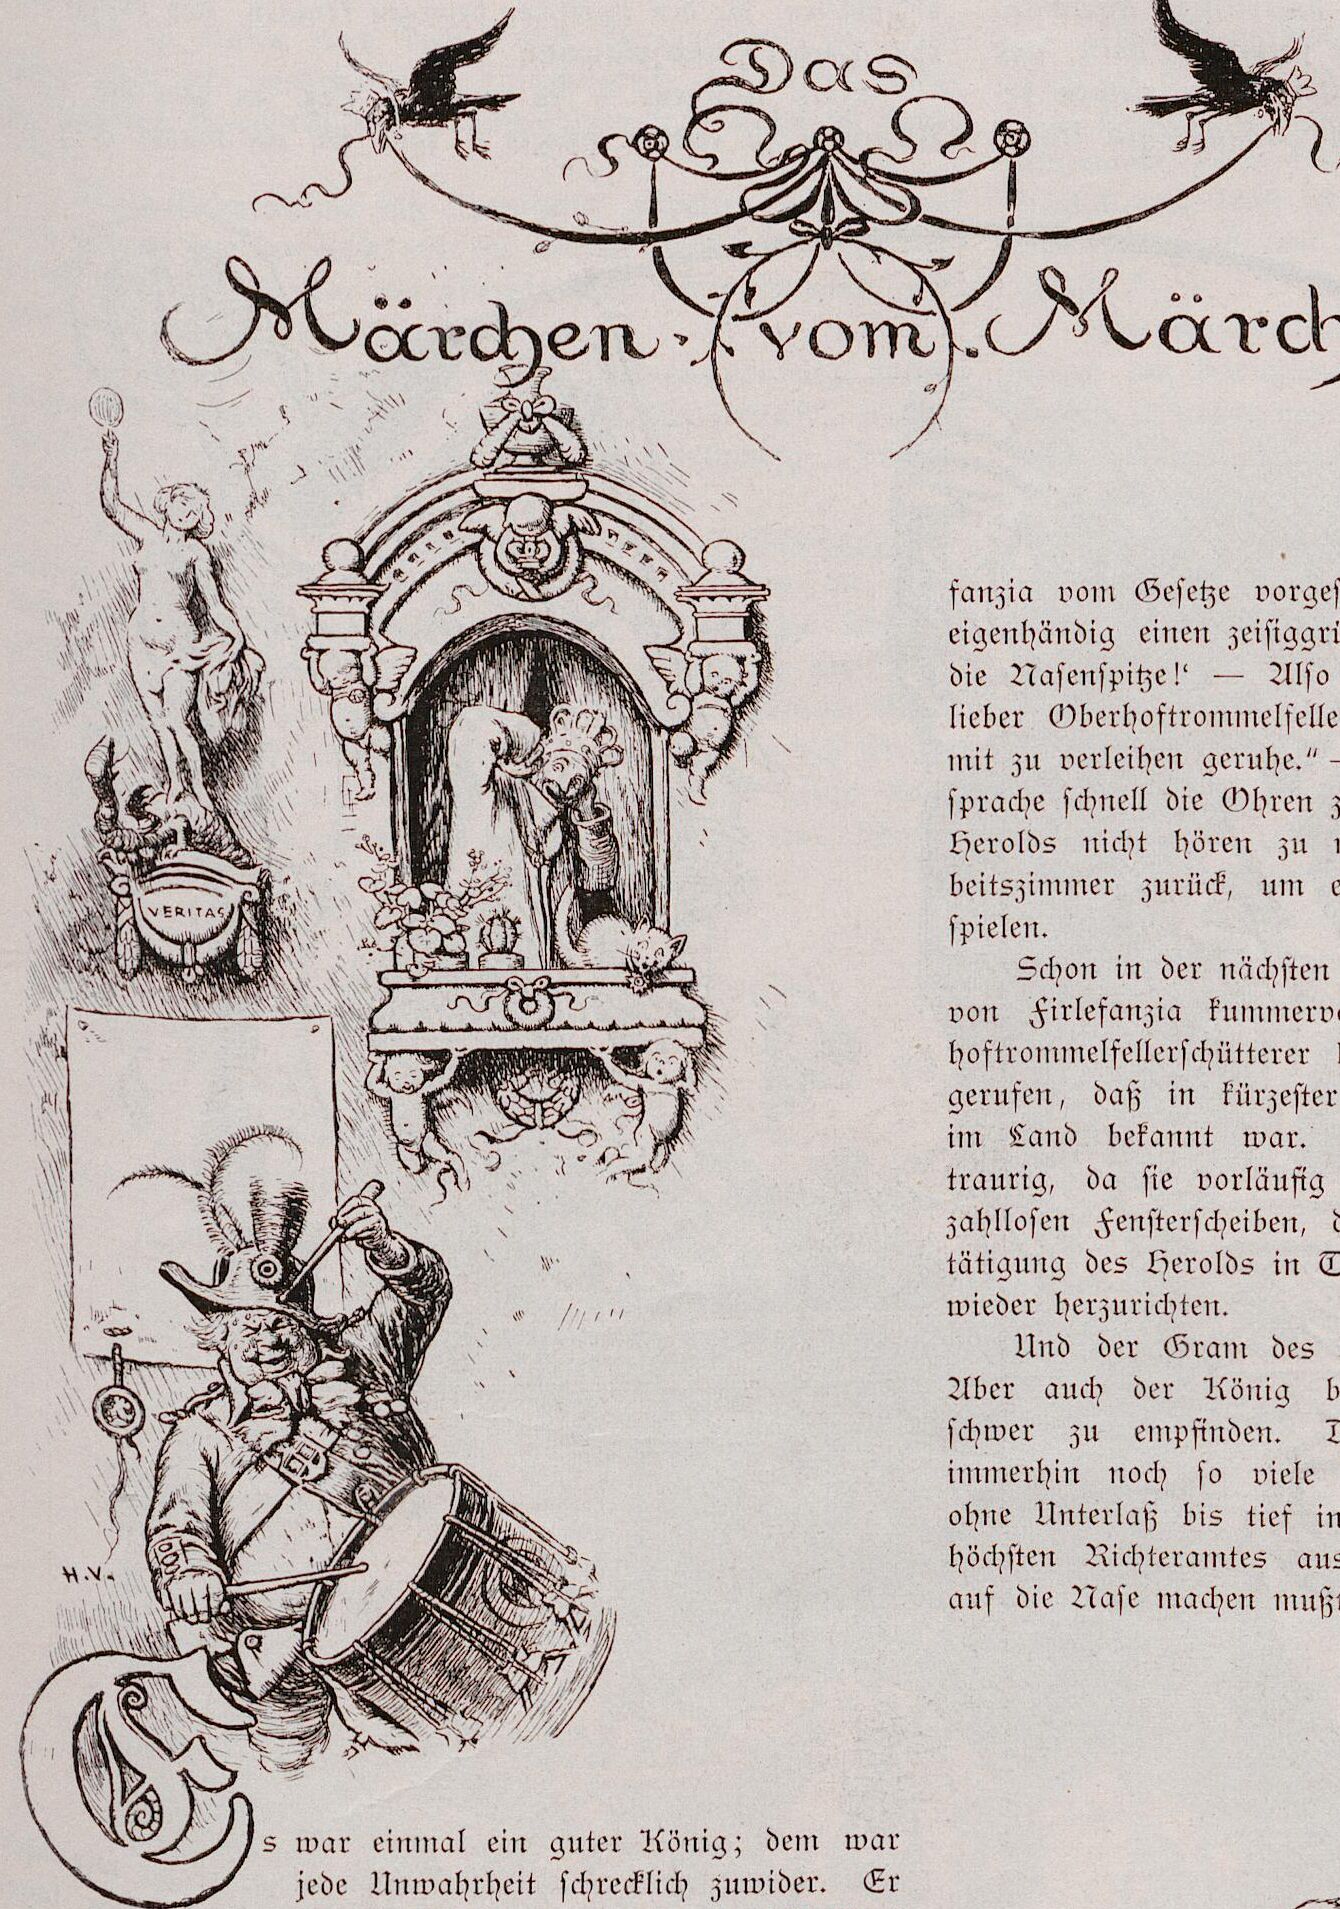 Das
Märchen vom Märch
VERITAS
H.V.
Es war einmal ein guter König; dem war
jede Unwahrheit schrecklich zuwider. Er
fanzia vom Gesetze vorges
eigenhändig einen zeisiggrü
die Nasenspitze!‘ — Also
lieber Oberhoftrommelfelle
mit zu verleihen geruhe.“ —
sprache schnell die Ohren z
Herolds nicht hören zu m
beitszimmer zurück, um e
spielen.
Schon in der nächsten
von Firlefanzia kummervo
hoftrommelfellerschütterer
gerufen, daß in kürzester
im Land bekannt war.
traurig, da sie vorläufig
zahllosen Fensterscheiben, d
tätigung des Herolds in T
wieder herzurichten.
Und der Gram des
Aber auch der König b
schwer zu empfinden.
immerhin noch so viele
ohne Unterlaß bis tief in
höchsten Richteramtes aus
auf die Nase machen mußt